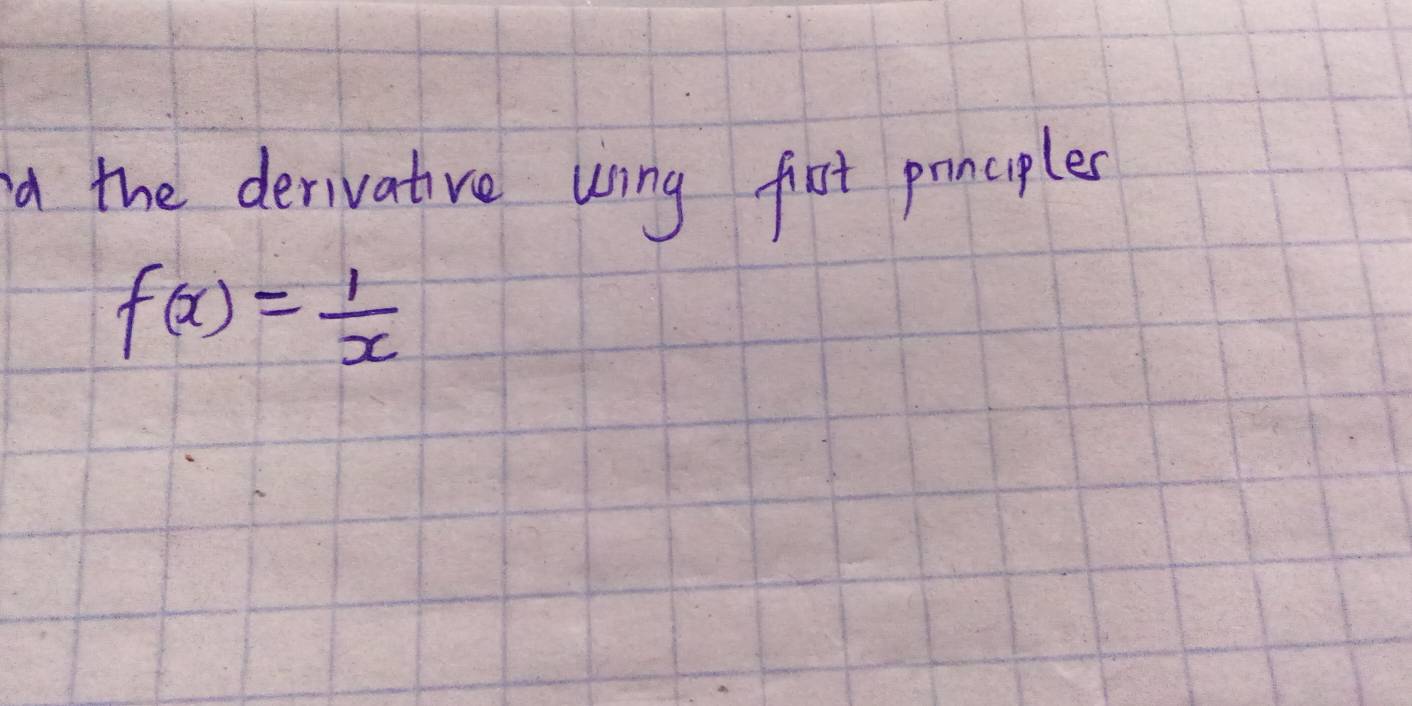 the derivative using first principles
f(x) = 1/x